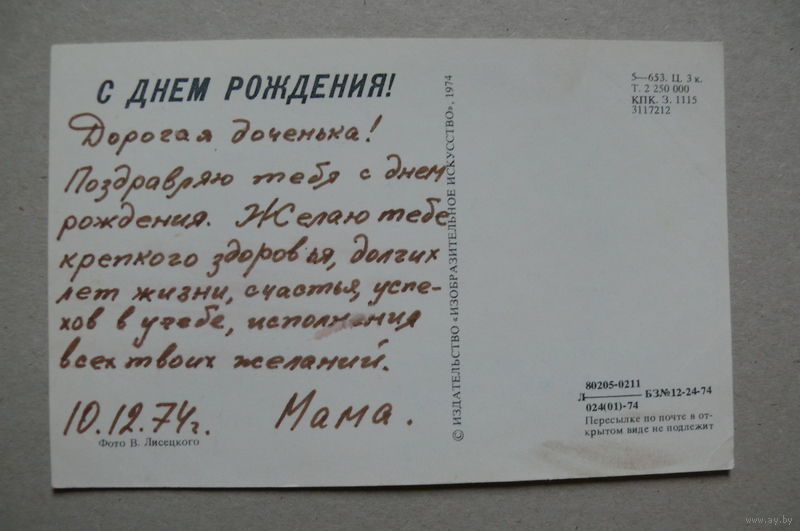 С ДНЕМ РОЖДЕНИЯ!
Дорогая доченька!
Поздравляю тебя с днем
рождения. Желаю тебе
крепкого здоровья, долгих
лет жизни, счастья, успе-
хов в учебе, исполнения
всех твоих желаний.
10.12.74г. Мама.
Фото В. Лисецкого
© ИЗДАТЕЛЬСТВО «ИЗОБРАЗИТЕЛЬНОЕ ИСКУССТВО», 1974
5—653. Ц. 3 к.
Т. 2 250 000
КПК. З. 1115
3117212
80205-0211
Л———— БЗ№12-24-74
024(01)-74
Пересылке по почте в от-
крытом виде не подлежит
www.ay.by